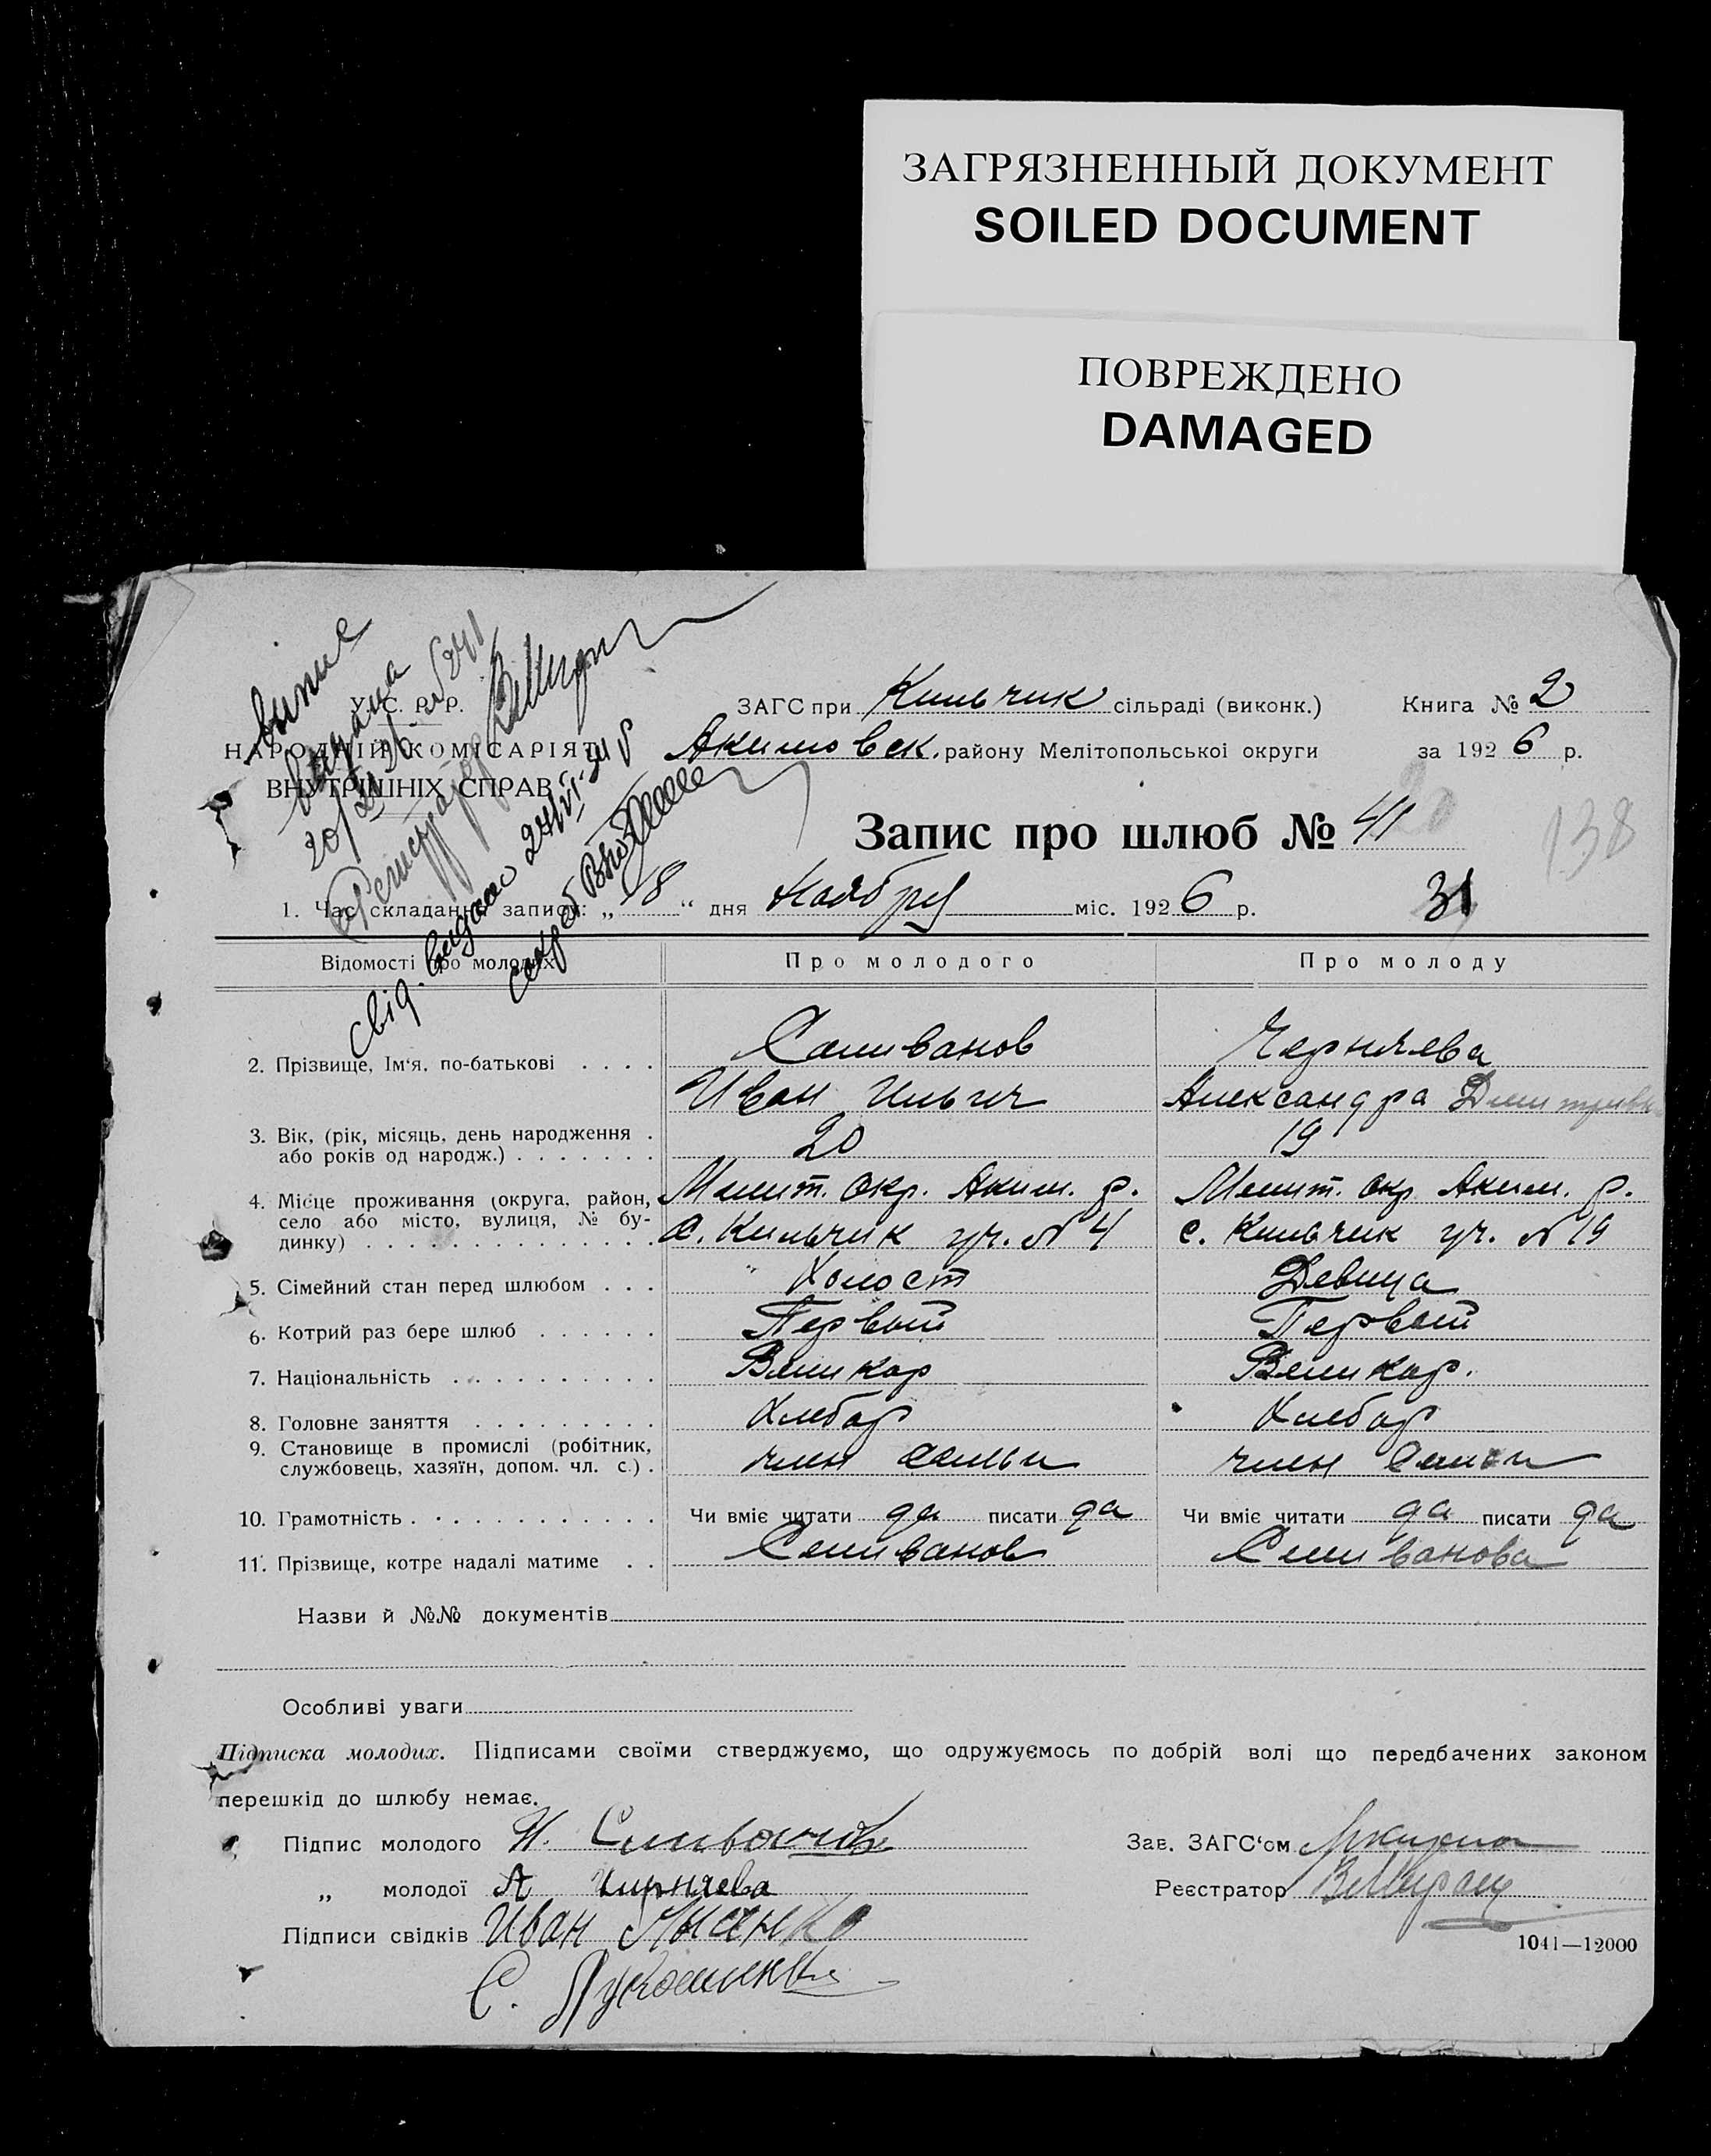 ЗАГРЯЗНЕННЫЙ ДОКУМЕНТ
SOILED DOCUMENT
ПОВРЕЖДЕНО
DAMAGED
У. С. Р. Р.
НАРОДНІЙ КОМІСАРІЯТ
ВНУТРІШНІХ СПРАВ
выпис
выдана
20/XI 26 №841
Регистратор
свід. видано 24/VI
ЗАГС при Кильчик сільраді (виконк.) Книга № 2
Акимовск. району Мелітопольської округи за 1926 р.
Запис про шлюб № 41
138
31
1. Час складання запису: „18“ дня Ноября міс. 1926 р.
Відомості про молодих Про молодого Про молоду
2. Прізвище, Ім'я, по-батькові . . . . Селиванов Черняева
Иван Ильич Александра Дмитривн
3. Вік, (рік, місяць, день народження .
або років од народж.) . . . . . . . 20 19
4. Місце проживання (округа, район, Мелит. окр. Аким. р. Мелит. окр Аким. р.
село або місто, вулиця, № бу-
динку) . . . . . . . . . . . . . с. Кильчик уч. № 4 с. Кильчик уч. № 19
5. Сімейний стан перед шлюбом . . . Холост Девица
6. Котрий раз бере шлюб . . . . . . Первый Первый
7. Національність . . . . . . . . . . Великор Великор.
8. Головне заняття . . . . . . . . . Хлебор Хлебор
9. Становище в промислі (робітник,
службовець, хазяїн, допом. чл. с.) . член семьи член семьи
10. Грамотність . . . . . . . . . . . . Чи вміє читати да писати да Чи вміє читати да писати да
11. Прізвище, котре надалі матиме . . Селиванов Селиванова
Назви й №№ документів
Особливі уваги
Підписка молодих. Підписами своїми стверджуємо, що одружуємось по добрій волі що передбачених законом
перешкід до шлюбу немає.
Підпис молодого И. Селиванов Зав. ЗАГС'ом
„ молодої А Чирняева Реєстратор
Підписи свідків Иван Лысенко
1041—12000
С.